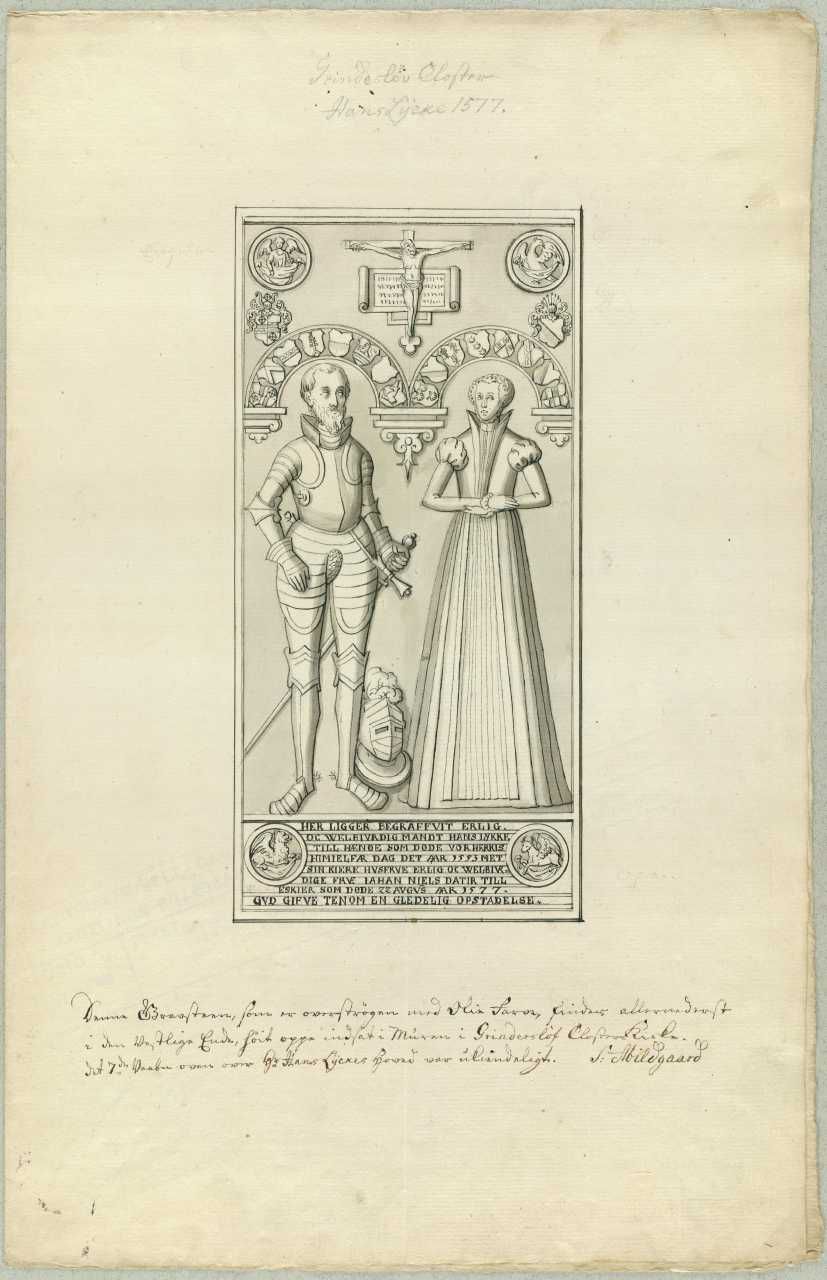 Grinderslöv Closter
Hans Lÿcke 1577.
HER LIGGER BEGRAFFVIT ERLIG.
OC WELBIVRDIG MANDT HANS LYKKE
TILL HÆNOE SOM DØDE VOR HERRIS
HIMIELFÆR DAG DET AAR 1553 MET
SIN KIERE HVSFRVE ERLIG OC WELBIVR-
DIGE FRVE IAHAN NIELS DATIR TILL
ESKIER SOM DØDE 22 AVGVS AAR 1577.
GVD GIFVE TENOM EN GLEDELIG OPSTADELSE.
Denne Gravsteen, som er overströgen med Olie Farve, findes allernederst
i den Vestlige Ende, höit oppe indsat i Muren i Grinderslöf Closter Kirke.
det 7de Vaaben oven over Hr Hans Lÿckes Hoved var ukiendeligt. S: Abildgaard